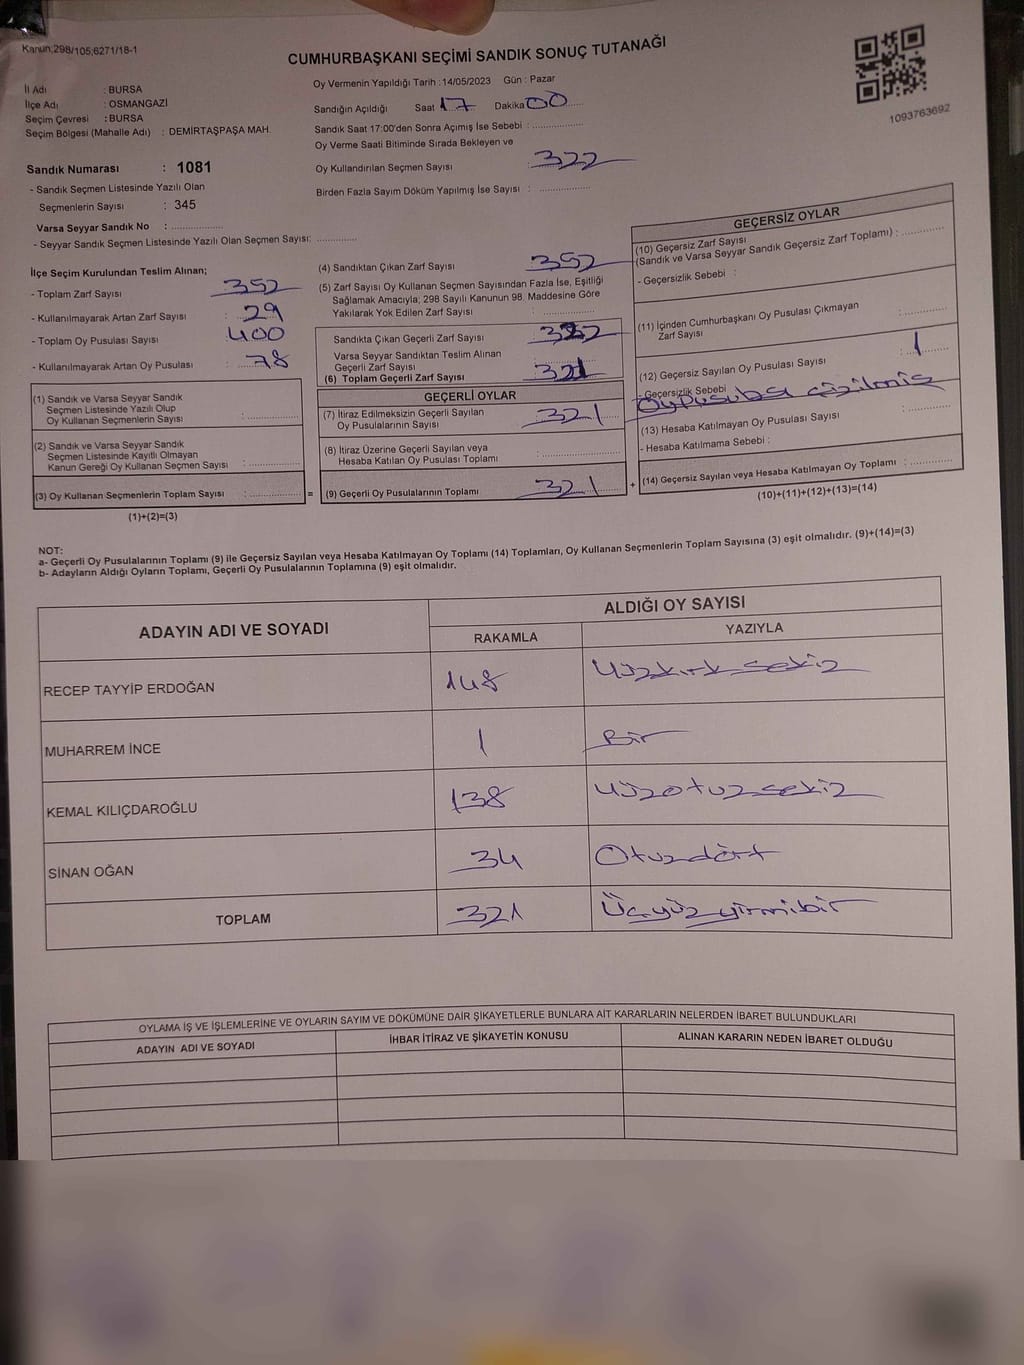 Kanun;298/105;6271/18-1
CUMHURBAŞKANI SEÇİMİ SANDIK SONUÇ TUTANAĞI
1093763692
İl Adı : BURSA
İlçe Adı : OSMANGAZİ
Seçim Çevresi : BURSA
Seçim Bölgesi (Mahalle Adı) : DEMİRTAŞPAŞA MAH.
Sandık Numarası : 1081
- Sandık Seçmen Listesinde Yazılı Olan
Seçmenlerin Sayısı : 345
Varsa Seyyar Sandık No : ..................
- Seyyar Sandık Seçmen Listesinde Yazılı Olan Seçmen Sayısı: ..............
Oy Vermenin Yapıldığı Tarih :14/05/2023 Gün : Pazar
Sandığın Açıldığı Saat 17 Dakika 00
Sandık Saat 17:00'den Sonra Açımış İse Sebebi : ....................
Oy Verme Saati Bitiminde Sırada Bekleyen ve
Oy Kullandırılan Seçmen Sayısı : 322
Birden Fazla Sayım Döküm Yapılmış İse Sayısı : ....................
İlçe Seçim Kurulundan Teslim Alınan;
- Toplam Zarf Sayısı 352
- Kullanılmayarak Artan Zarf Sayısı : 29
- Toplam Oy Pusulası Sayısı : 400
- Kullanılmayarak Artan Oy Pusulası : 78
(1) Sandık ve Varsa Seyyar Sandık
Seçmen Listesinde Yazılı Olup
Oy Kullanan Seçmenlerin Sayısı : ....................
(2) Sandık ve Varsa Seyyar Sandık
Seçmen Listesinde Kayıtlı Olmayan
Kanun Gereği Oy Kullanan Seçmen Sayısı : ....................
(3) Oy Kullanan Seçmenlerin Toplam Sayısı : ....................
(1)+(2)=(3)
=
(4) Sandıktan Çıkan Zarf Sayısı 352
(5) Zarf Sayısı Oy Kullanan Seçmen Sayısından Fazla İse, Eşitliği
Sağlamak Amacıyla; 298 Sayılı Kanunun 98. Maddesine Göre
Yakılarak Yok Edilen Zarf Sayısı : ....................
Sandıkta Çıkan Geçerli Zarf Sayısı : 322
Varsa Seyyar Sandıktan Teslim Alınan
Geçerli Zarf Sayısı : ....................
(6) Toplam Geçerli Zarf Sayısı : 321
GEÇERLİ OYLAR
(7) İtiraz Edilmeksizin Geçerli Sayılan
Oy Pusulalarının Sayısı : 321
(8) İtiraz Üzerine Geçerli Sayılan veya
Hesaba Katılan Oy Pusulası Toplamı : ....................
(9) Geçerli Oy Pusulalarının Toplamı : 321
+
GEÇERSİZ OYLAR
(10) Geçersiz Zarf Sayısı
(Sandık ve Varsa Seyyar Sandık Geçersiz Zarf Toplamı) : ..............
- Geçersizlik Sebebi :
(11) İçinden Cumhurbaşkanı Oy Pusulası Çıkmayan
Zarf Sayısı : ..............
(12) Geçersiz Sayılan Oy Pusulası Sayısı : 1
- Geçersizlik Sebebi
Oy pusulası çizilmiş
(13) Hesaba Katılmayan Oy Pusulası Sayısı : ..............
- Hesaba Katılmama Sebebi :
(14) Geçersiz Sayılan veya Hesaba Katılmayan Oy Toplamı : ..............
(10)+(11)+(12)+(13)=(14)
NOT:
a- Geçerli Oy Pusulalarının Toplamı (9) ile Geçersiz Sayılan veya Hesaba Katılmayan Oy Toplamı (14) Toplamları, Oy Kullanan Seçmenlerin Toplam Sayısına (3) eşit olmalıdır. (9)+(14)=(3)
b- Adayların Aldığı Oyların Toplamı, Geçerli Oy Pusulalarının Toplamına (9) eşit olmalıdır.
ADAYIN ADI VE SOYADI
ALDIĞI OY SAYISI
RAKAMLA YAZIYLA
RECEP TAYYİP ERDOĞAN 148 Yüzkırksekiz
MUHARREM İNCE 1 Bir
KEMAL KILIÇDAROĞLU 138 Yüzotuzsekiz
SİNAN OĞAN 34 Otuzdört
TOPLAM 321 Üçyüzyirmibir
OYLAMA İŞ VE İŞLEMLERİNE VE OYLARIN SAYIM VE DÖKÜMÜNE DAİR ŞİKAYETLERLE BUNLARA AİT KARARLARIN NELERDEN İBARET BULUNDUKLARI
ADAYIN ADI VE SOYADI İHBAR İTİRAZ VE ŞİKAYETİN KONUSU ALINAN KARARIN NEDEN İBARET OLDUĞU